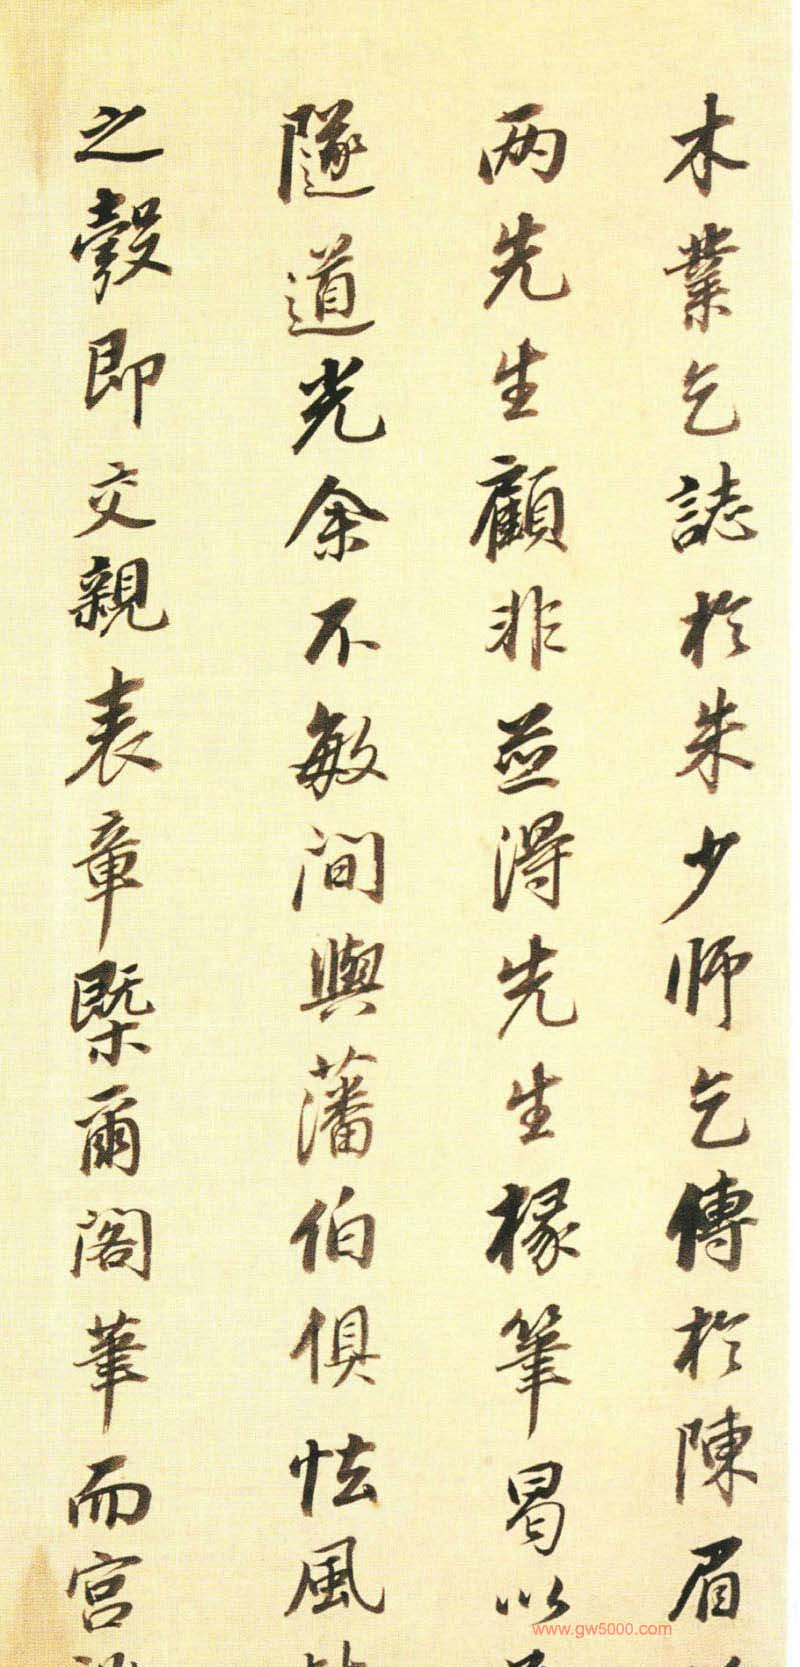 木業乞誌於朱少師乞傳於陳眉
两先生顧非並得先生椽筆曷以
隧道光余不敏間與藩伯俱怯風
之彀即交親表章槩爾閣筆而宫
www.gw5000.com